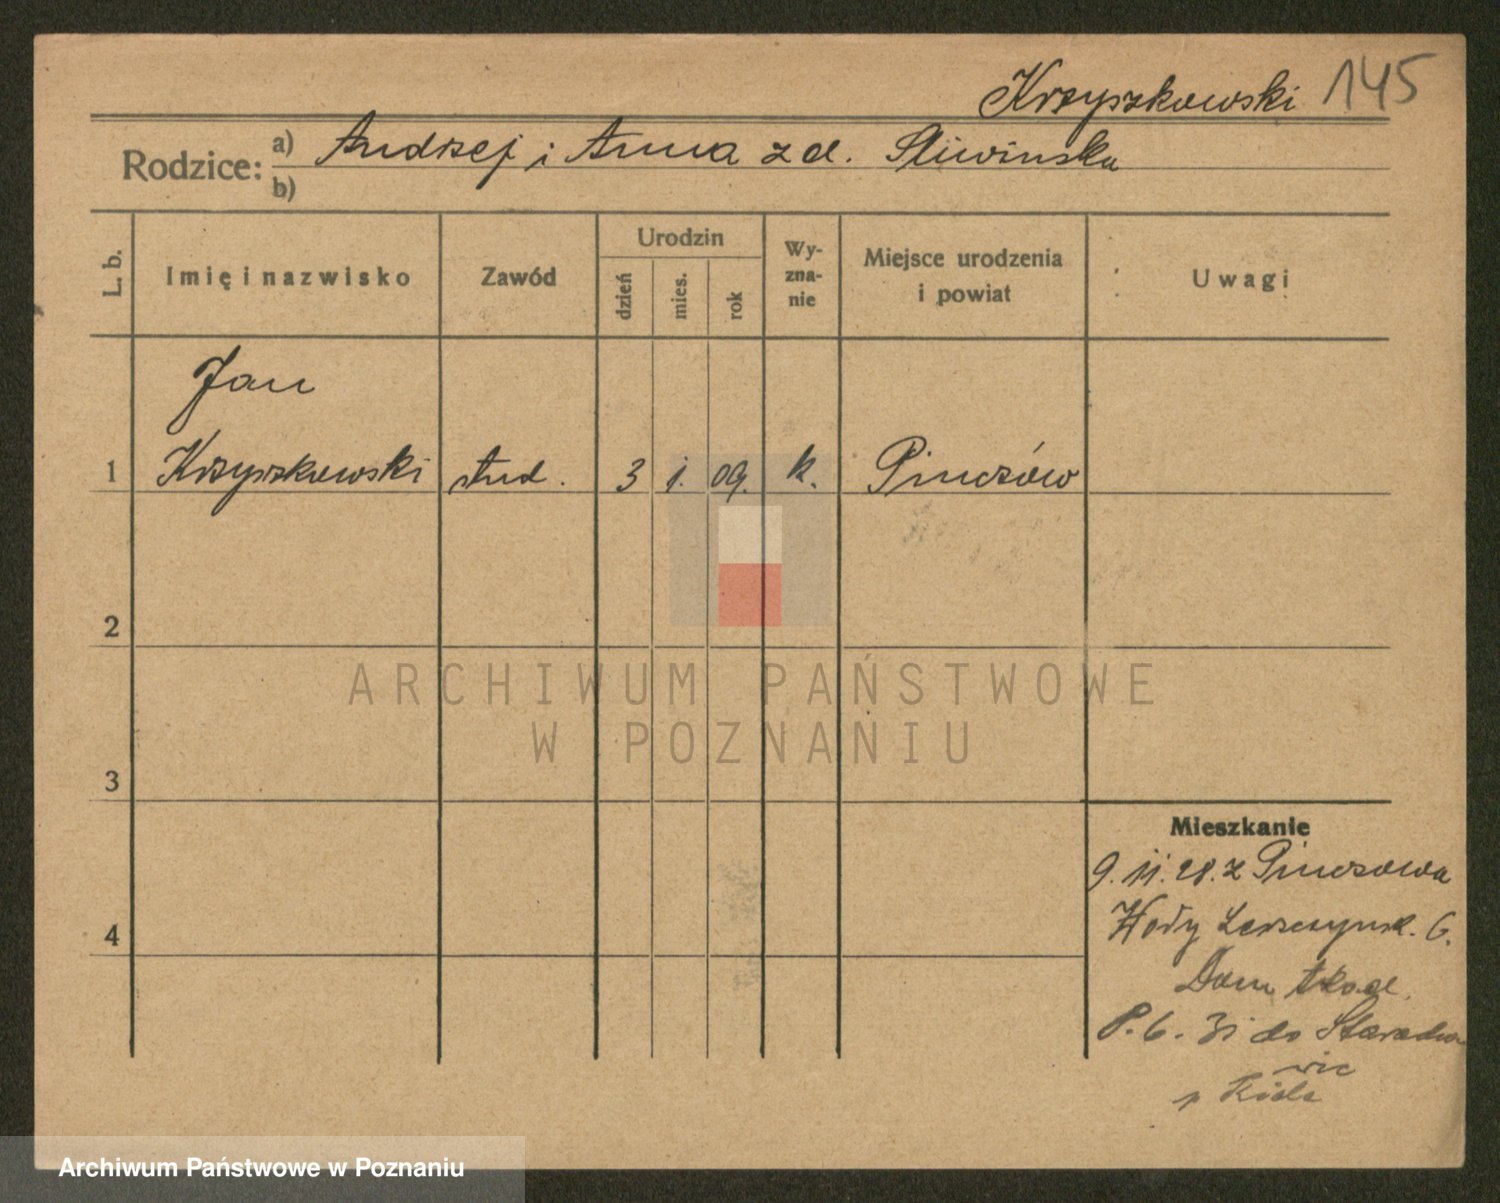 Krzyszkowski 145
Rodzice: a) Andrzej i Anna z d. Śliwińska
b)
L. b.
Imię i nazwisko
Zawód
Urodzin
dzień
mies.
rok
Wy-
zna-
nie
Miejsce urodzenia
i powiat
Uwagi
Jan
1 Krzyszkowski stud. 3 1. 09. k. Pinczów
2
3
4
Mieszkanie
9. 11. 28. z Pinczowa
Dom akad.
P. 6. 31 do Staracho
wic
ARCHIWUM PAŃSTWOWE
W POZNANIU
Archiwum Państwowe w Poznaniu